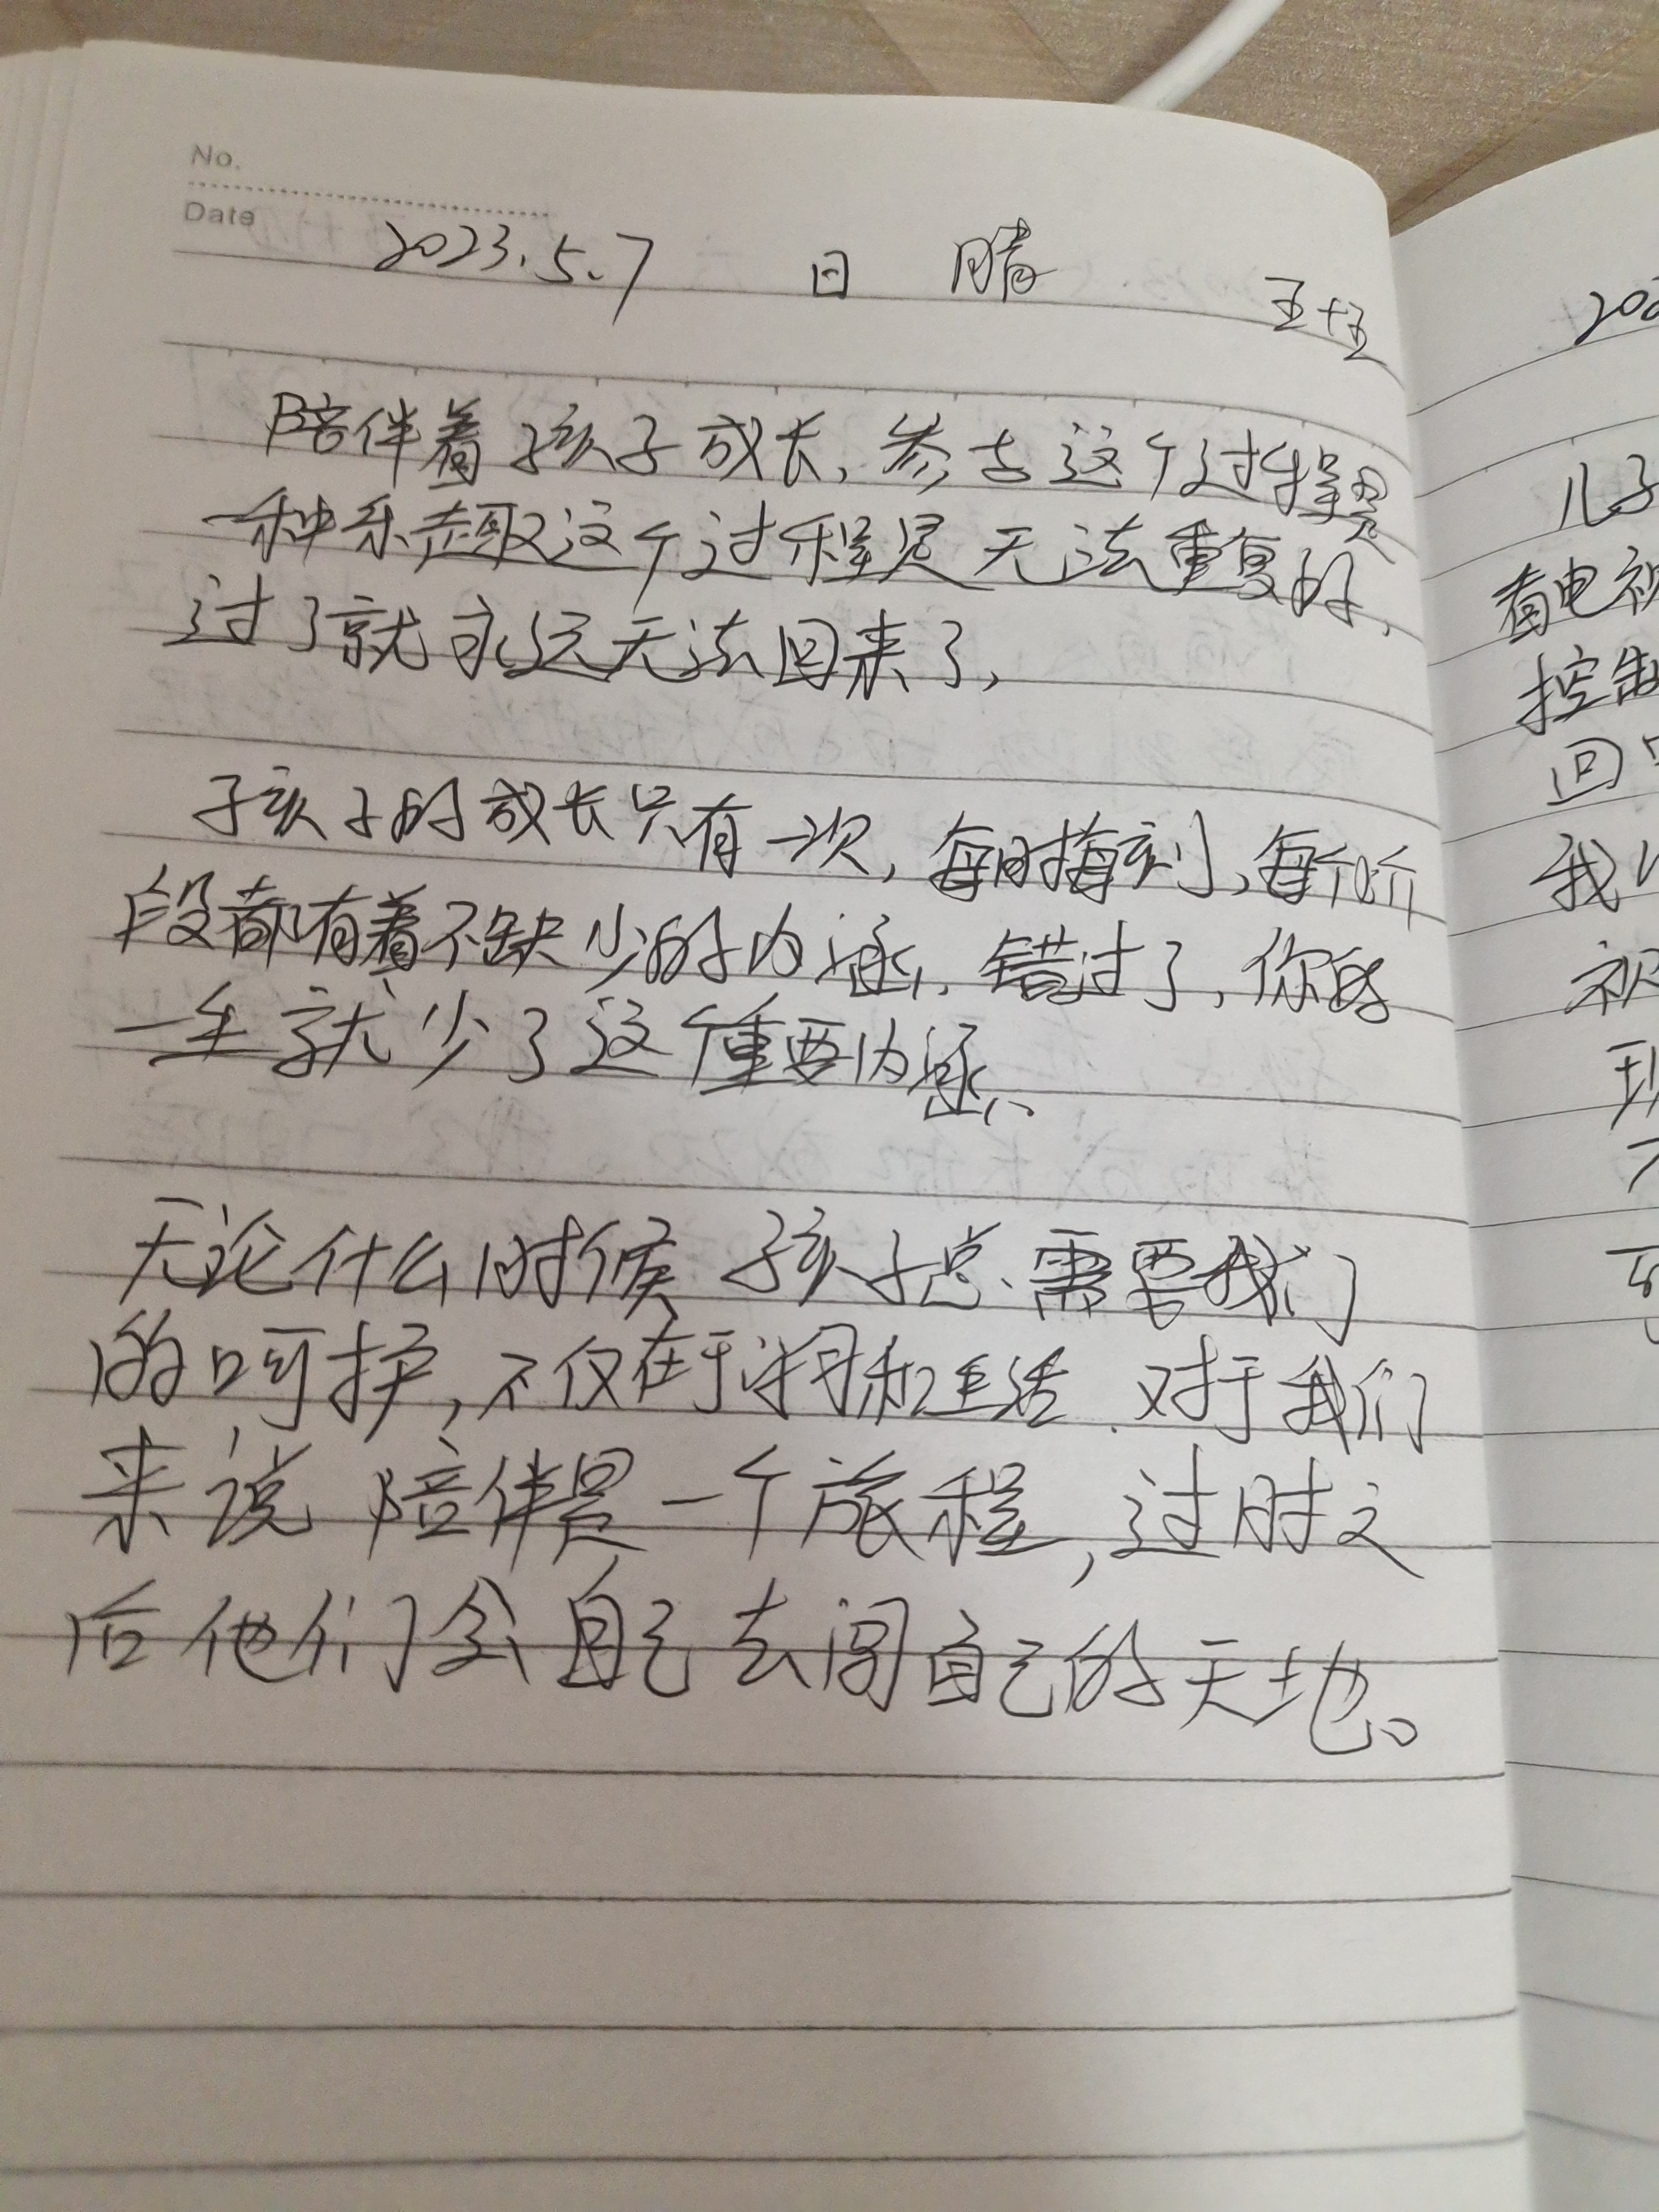 No.
Date
2023.5.7 日 晴 五十五
陪伴着孩子成长,参与这个过程是
一种乐趣这个过程是无法重复的,
过了就永远无法回来了,
孩子的成长只有一次,每时每刻,每个阶
段都有着不缺少的内涵,错过了,你的
一生就少了这个重要内涵、
无论什么时候 孩子总需要我们
的呵护,不仅在于学习和生活.对于我们
来说 陪伴是一个旅程,过时之
后他们会自己去闯自己的天地。
202
儿子
看电视
控制
回
我
祝
到
不